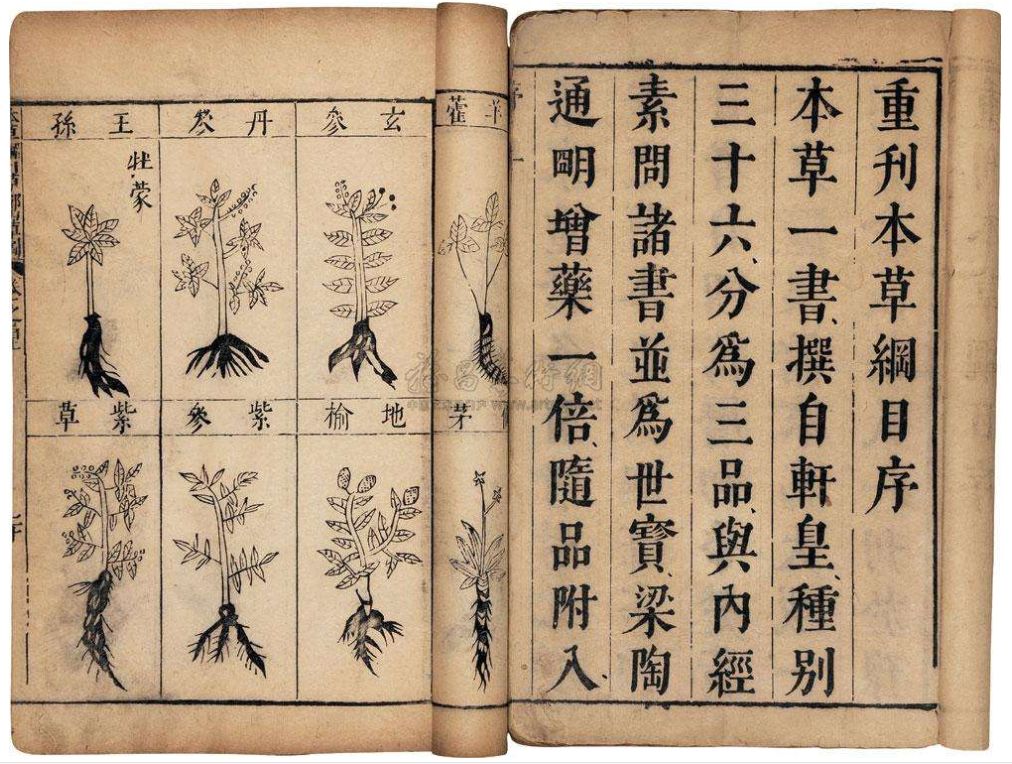 重刊本草綱目序
本草一書、撰自軒皇、種別
三十六、分爲三品、與內經
素問諸書並爲世寶、梁陶
通朙增藥一倍、隨品附入、
羊藿
玄參
丹參
王孫
牡蒙
茅
地榆
紫參
紫草